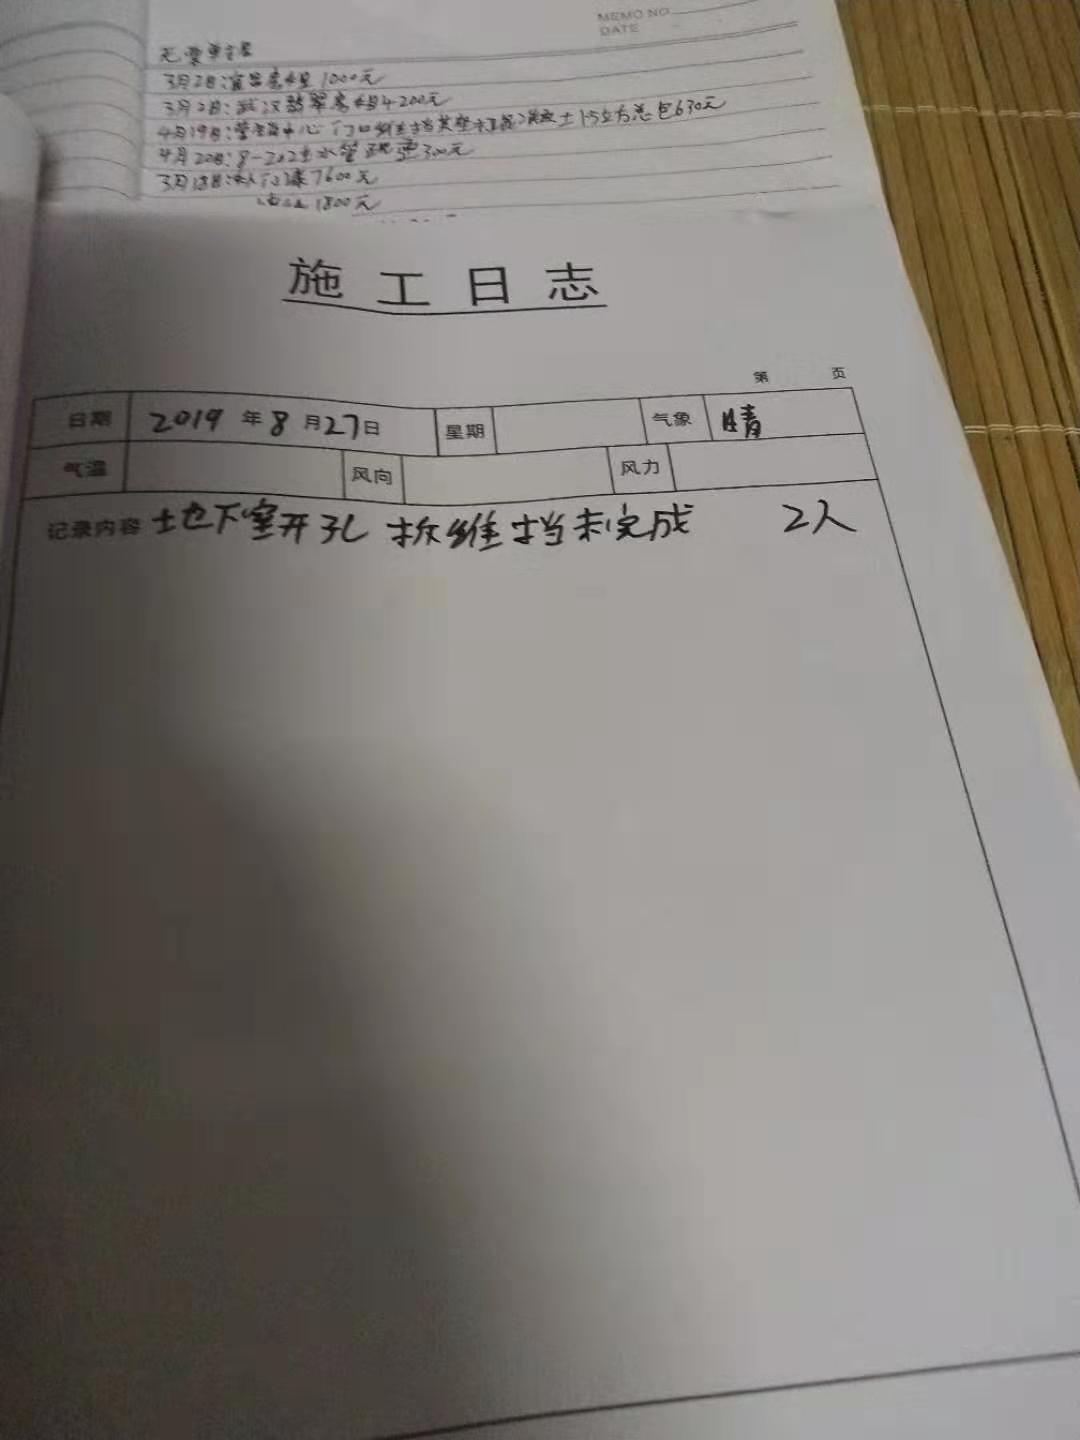 MEMO NO.
DATE
无票单
3月2日:宜昌房租 1000元
3月2日:武汉翡翠房租4200元
4月19日:营销中心门口维挡 土15立方总包630元
4月20日:8-202 水管 300元
3月18日: 门 7600元
1800元
施工日志
第 页
日期 2019年8月27日 星期 气象 晴
气温 风向 风力
记录内容 地下室开孔 拆维挡未完成 2人